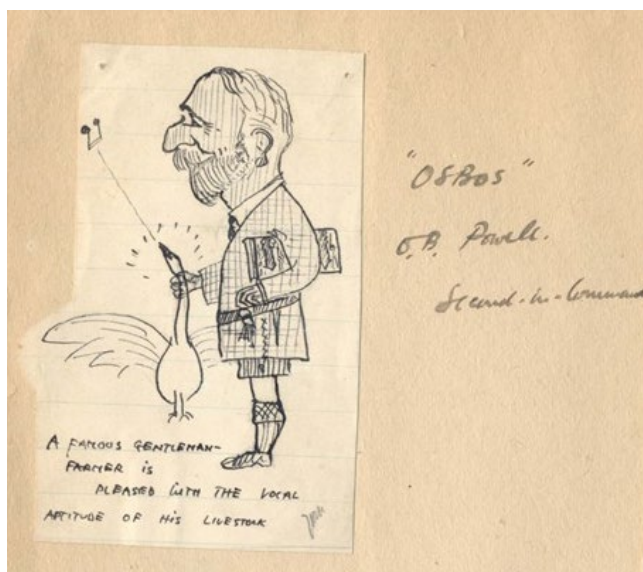 A FAMOUS GENTLEMAN-
FARMER IS
PLEASED WITH THE VOCAL
APTITUDE OF HIS LIVESTOCK
"OSBOS"
O.B. Powell.
Second-in-Command